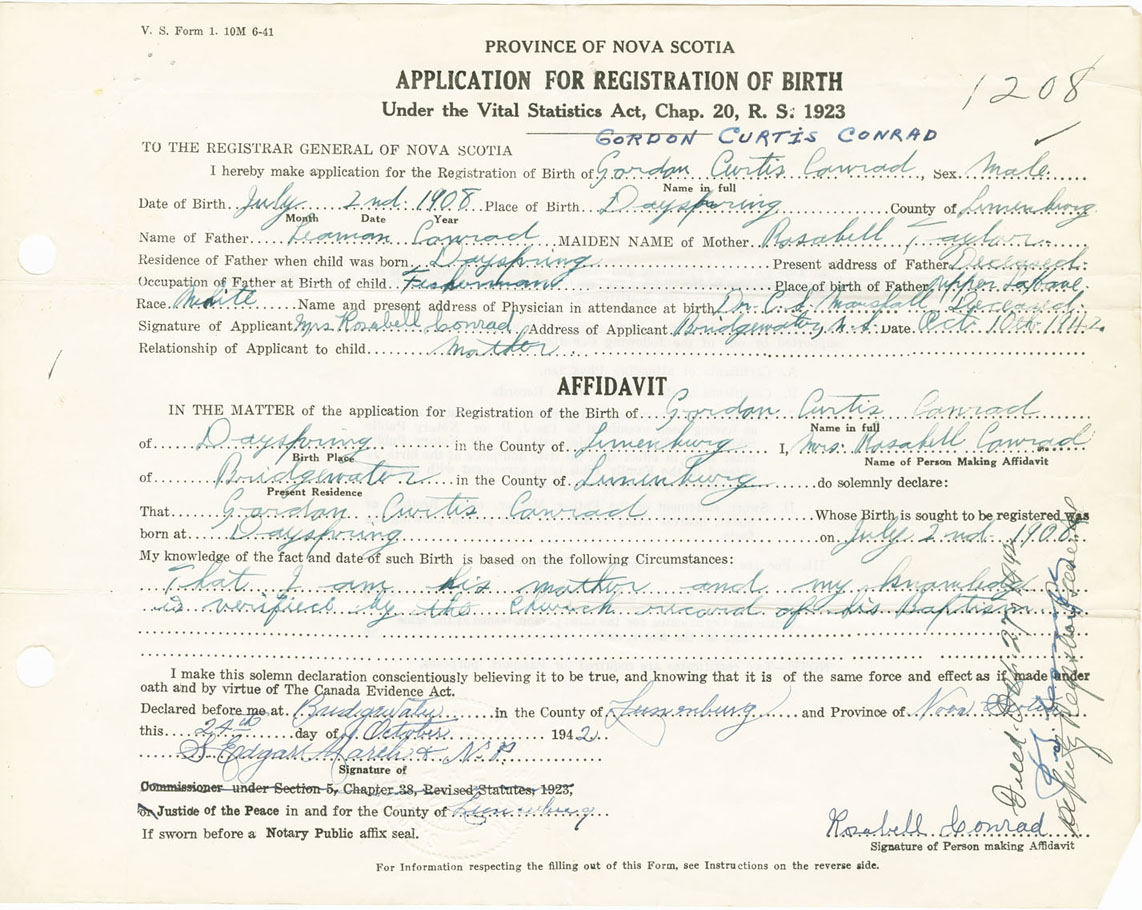 V. S. Form 1. 10M 6-41
PROVINCE OF NOVA SCOTIA
APPLICATION FOR REGISTRATION OF BIRTH
1208
Under the Vital Statistics Act, Chap. 20, R. S. 1923
GORDON CURTIS CONRAD
TO THE REGISTRAR GENERAL OF NOVA SCOTIA
I hereby make application for the Registration of Birth of Gordon Curtis Conrad, Sex Male
Name in full
Date of Birth July 2nd 1908 Place of Birth Dayspring County of Lunenburg
Month Date Year
Name of Father Leaman Conrad MAIDEN NAME of Mother Rosabell Taylor
Residence of Father when child was born Dayspring Present address of Father Deceased
Occupation of Father at Birth of child Fisherman Place of birth of Father Upper LaHave
Race White Name and present address of Physician in attendance at birth Dr. C. S. Marshall Deceased
Signature of Applicant Mrs Rosabell Conrad Address of Applicant Bridgewater, N. S. Date Oct. 1942
Relationship of Applicant to child Mother
AFFIDAVIT
IN THE MATTER of the application for Registration of the Birth of Gordon Curtis Conrad
Name in full
of Dayspring in the County of Lunenburg I, Mrs. Rosabell Conrad
Birth Place Name of Person Making Affidavit
of Bridgewater in the County of Lunenburg do solemnly declare:
Present Residence
That Gordon Curtis Conrad Whose Birth is sought to be registered was
born at Dayspring on July 2nd 1908
My knowledge of the fact and date of such Birth is based on the following Circumstances:
That I am his mother and my knowledge
is verified by the Church record of his Baptism
I make this solemn declaration conscientiously believing it to be true, and knowing that it is of the same force and effect as if made under
oath and by virtue of The Canada Evidence Act.
Declared before me at Bridgewater in the County of Lunenburg and Province of Nova Scotia
this 24th day of October 1942
S Edgar March
Signature of
Commissioner under Section 5, Chapter 38, Revised Statutes, 1923,
or Justice of the Peace in and for the County of Lunenburg
If sworn before a Notary Public affix seal.
Rosabell Conrad
Signature of Person making Affidavit
For Information respecting the filling out of this Form, see Instructions on the reverse side.
Deputy Registrar General